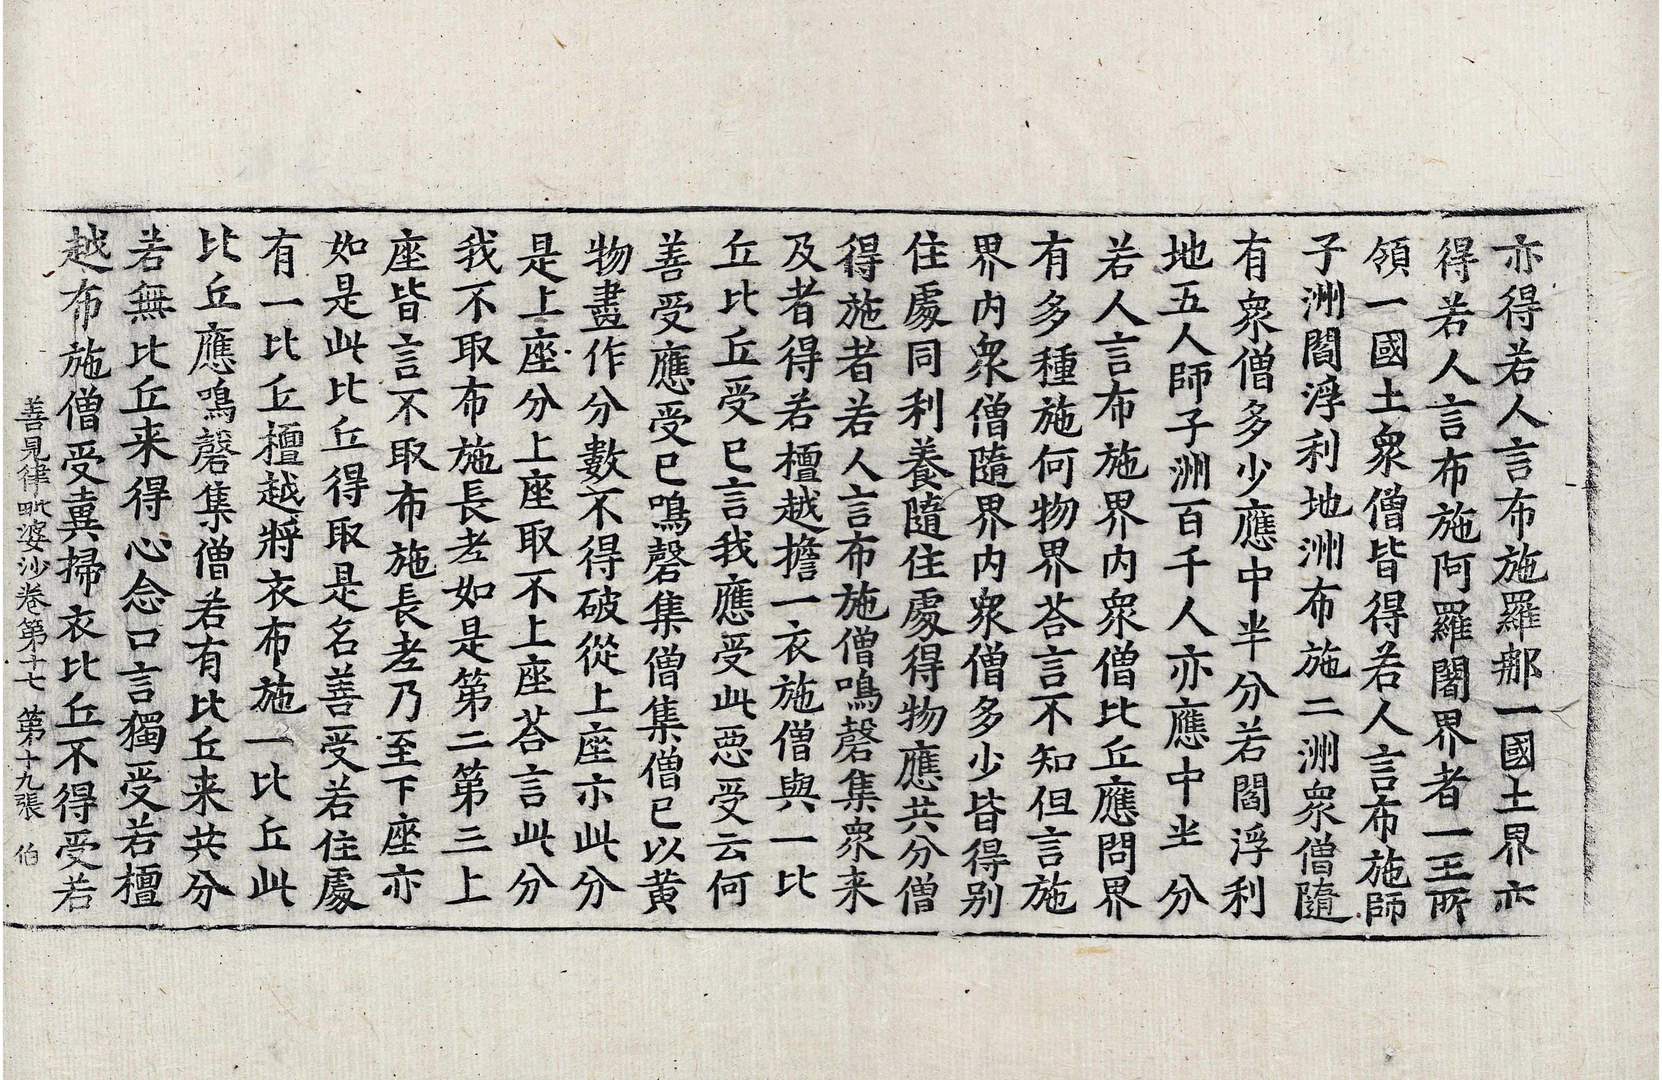 亦得若人言布施羅那一國土界亦
得若人言布施阿羅闍界者一王所
領一國土衆僧皆得若人言布施師
子洲閻浮利地洲布施二洲衆僧隨
有衆僧多少應中半分若閻浮利
地五人師子洲百千人亦應中半分
若人言布施界内衆僧比丘應問界
有多種施何物界荅言不知但言施
界内衆僧隨界内衆僧多少皆得別
住處同利養隨住處得物應共分僧
得施者若人言布施僧鳴磬集衆来
及者得若檀越擔一衣施僧與一比
丘比丘受已言我應受此惡受云何
善受應受已鳴磬集僧集僧已以黃
物畫作分數不得破從上座亦此分
是上座分上座取不上座荅言此分
我不取布施長老如是第二第三上
座皆言不取布施長老乃至下座亦
如是此比丘得取是名善受若住處
有一比丘檀越將衣布施一比丘此
比丘應鳴磬集僧若有比丘来共分
若無比丘来得心念口言獨受若檀
越布施僧受糞掃衣比丘不得受若
善見律毗婆沙卷第十七 第十九張 伯